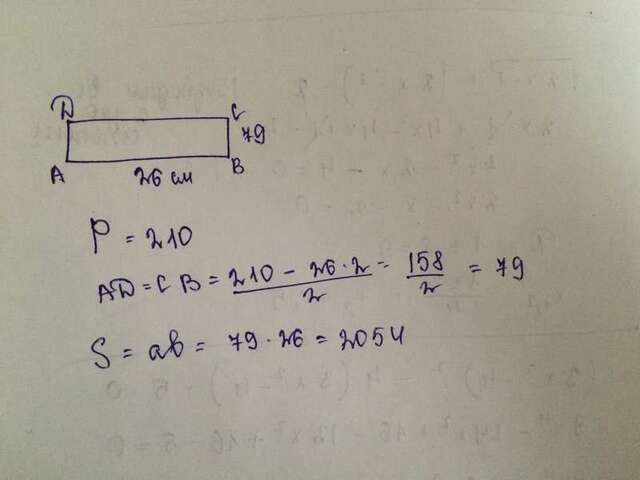 D C
79
A 26 см B
P = 210
AD = CB = \frac{210 - 26·2}{2} = \frac{158}{2} = 79
S = ab = 79·26 = 2054